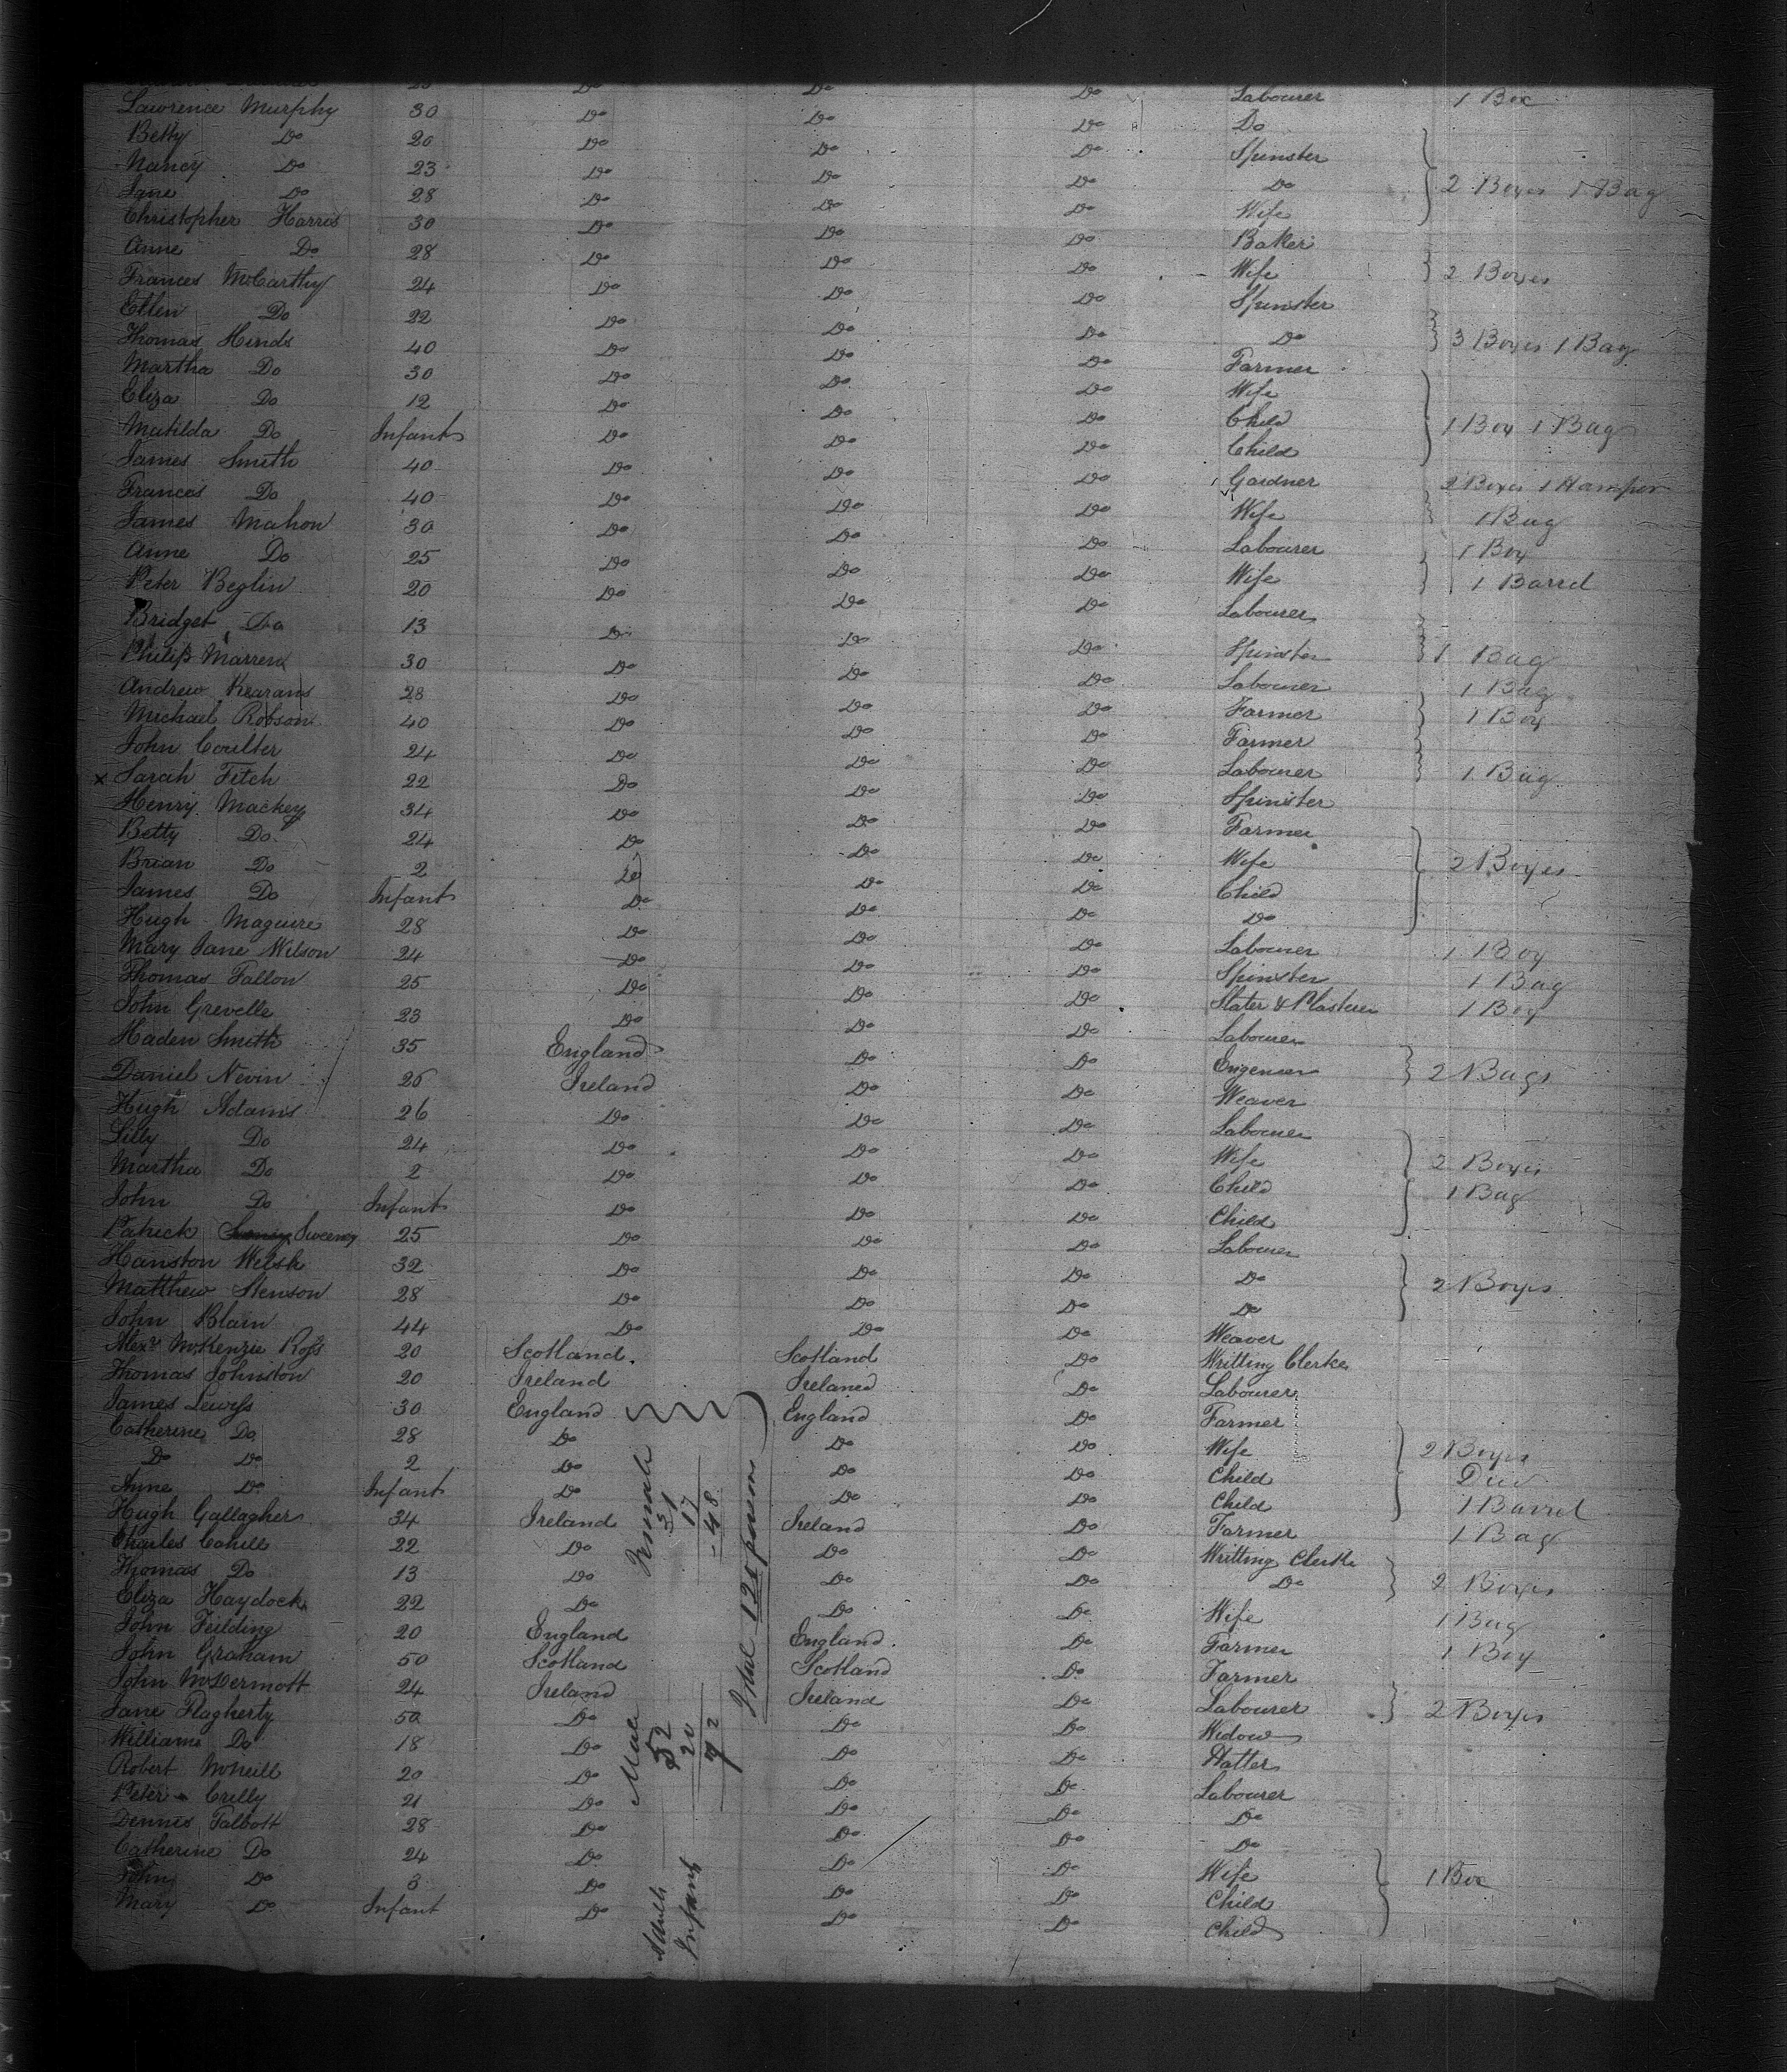 Lawrence Murphy 30 Do Do Do Labourer 1 Box
Betty Do 20 Do Do Do Do
Nancy Do 23 Do Do Do Spinster
Jane Do 28 Do Do Do Do 2 Boxes 1 Bag
Christopher Harris 30 Do Do Do Wife
Anne Do 28 Do Do Do Baker
Frances McCarthy 24 Do Do Do Wife 2 Boxes
Ellen Do 22 Do Do Do Spinster
Thomas Hinds 40 Do Do Do Do 3 Boxes 1 Bag
Martha Do 30 Do Do Do Farmer
Eliza Do 12 Do Do Do Wife
Matilda Do Infant Do Do Do Child 1 Box 1 Bag
James Smith 40 Do Do Do Child
Frances Do 40 Do Do Do Gardner 2 Boxes 1 Hamper
James Mahon 30 Do Do Do Wife 1 Bag
Anne Do 25 Do Do Do Labourer 1 Box
Peter Beglin 20 Do Do Do Wife 1 Barrel
Bridget Do 13 Do Do Do Labourer
Philip Marren 30 Do Do Do Spinster 1 Bag
Andrew Kearans 28 Do Do Do Labourer 1 Bag
Michael Robson 40 Do Do Do Farmer 1 Box
John Coulter 24 Do Do Do Farmer
x Sarah Fitch 22 Do Do Do Labourer 1 Bag
Henry Mackey 34 Do Do Do Spinster
Betty Do 24 Do Do Do Farmer
Brian Do 2 Do Do Do Wife 2 Boxes
James Do Infant Do Do Do Child
Hugh Maguire 28 Do Do Do Do
Mary Jane Wilson 24 Do Do Do Labourer 1 Box
Thomas Fallon 25 Do Do Do Spinster 1 Bag
John Grevelle 23 Do Do Do Slater & Plasterer 1 Box
Haden Smith 35 England Do Do Labourer
Daniel Nevin 25 Ireland Do Do Engeneer 2 Bags
Hugh Adams 26 Do Do Do Weaver
Lilly Do 24 Do Do Do Labourer
Martha Do 2 Do Do Do Wife 2 Boxes
John Do Infant Do Do Do Child 1 Bag
Patrick Sweeny 25 Do Do Do Child
Hanston Welsh 32 Do Do Do Labourer
Matthew Stenson 28 Do Do Do Do 2 Boxes
John Blain 44 Do Do Do Do
Weaver
Alexr McKenzie Ross 20 Scotland Scotland Do Writting Clerke
Thomas Johnston 20 Ireland Ireland Do Labourer
James Lewyss 30 England England Do Farmer
Catherine Do 28 Do Do Do Wife 2 Boxes
Do Do 2 Do Do Do Child
Anne Do Infant Do Do Do Child 1 Barrel
Hugh Gallagher 34 Ireland Ireland Do Farmer 1 Bag
Charles Cahill 22 Do Do Do Writting Clerk
Thomas Do 13 Do Do Do Do 2 Boxes
Eliza Haydock 22 Do Do Do Wife 1 Bag
John Feilding 20 England England Do Farmer 1 Box
John Graham 50 Scotland Scotland Do Farmer
John McDermott 24 Ireland Ireland Do Labourer 2 Boxes
Jane Flagherty 50 Do Do Do Widow
William Do 18 Do Do Do Hatter
Robert McNeill 20 Do Do Do Labourer
Peter Crilly 21 Do Do Do Do
Dennis Talbott 28 Do Do Do Do
Catherine Do 24 Do Do Do Wife 1 Box
John Do 3 Do Do Do Child
Mary Do Infant Do Do Do Child
Adults
Infants
Male
52
20
72
Female
31
17
48
Total 120 persons